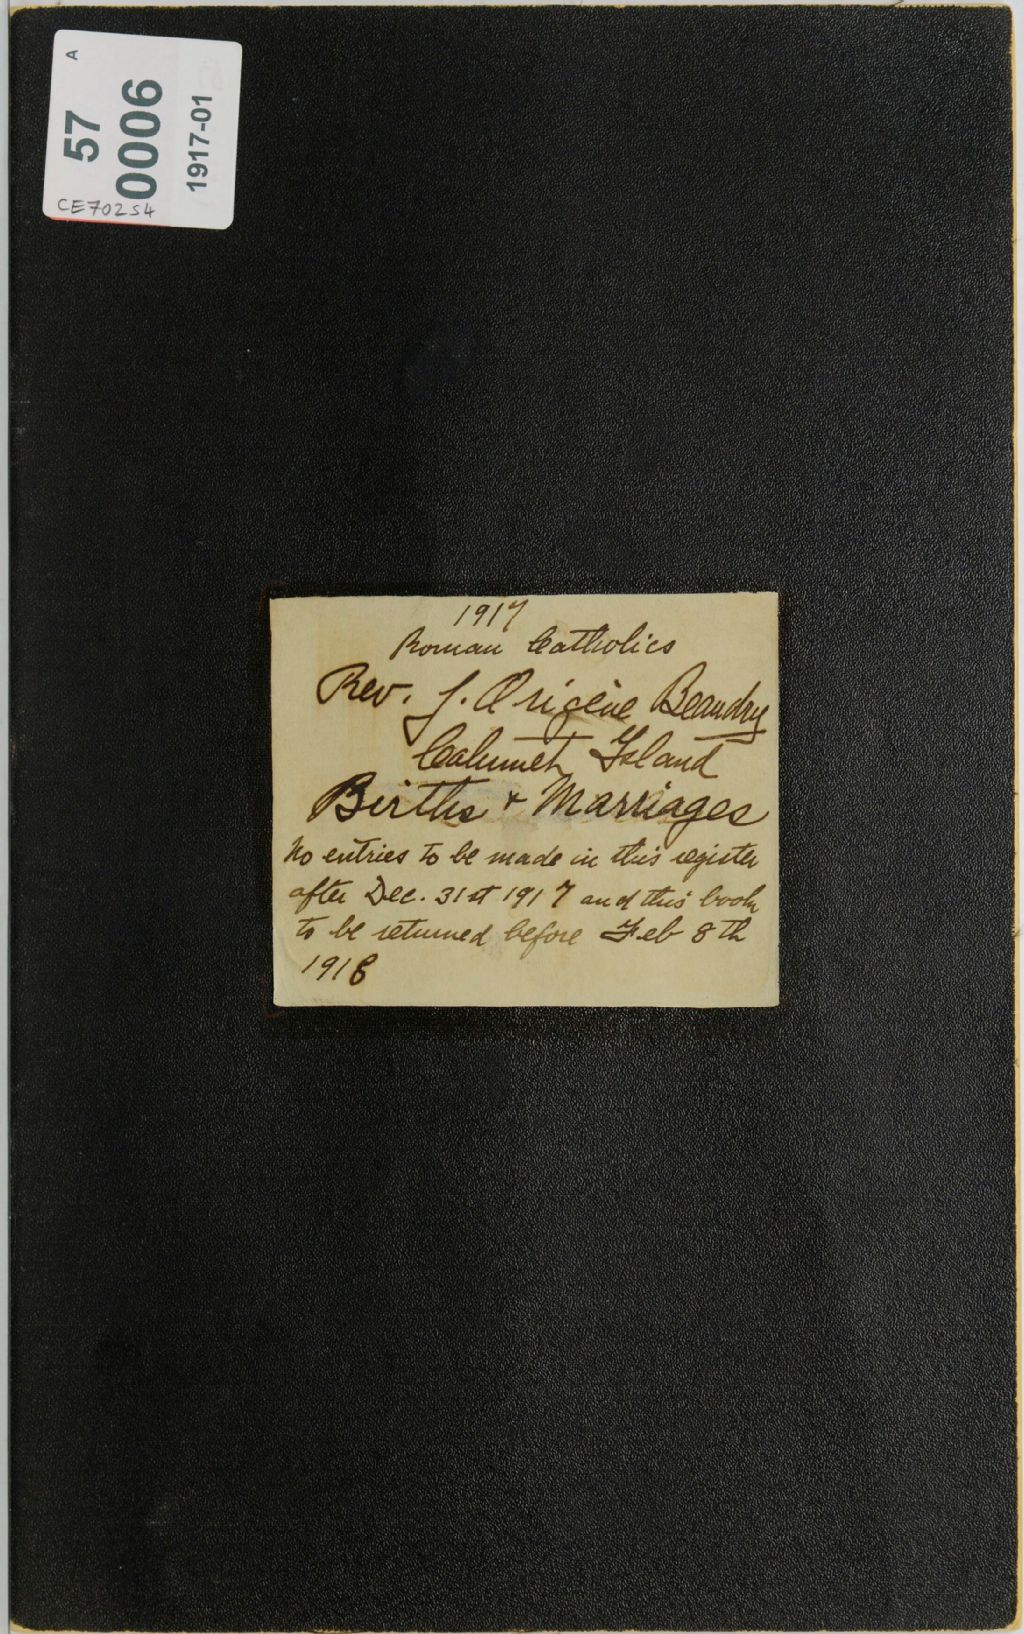 A
57
0006
1917-01
CE702S4
1917
Roman Catholics
Rev. J. Origène Beaudry
Calumet Island
Births + Marriages
No entries to be made in this register
after Dec. 31st 1917 and this book
to be returned before Feb 8th
1918